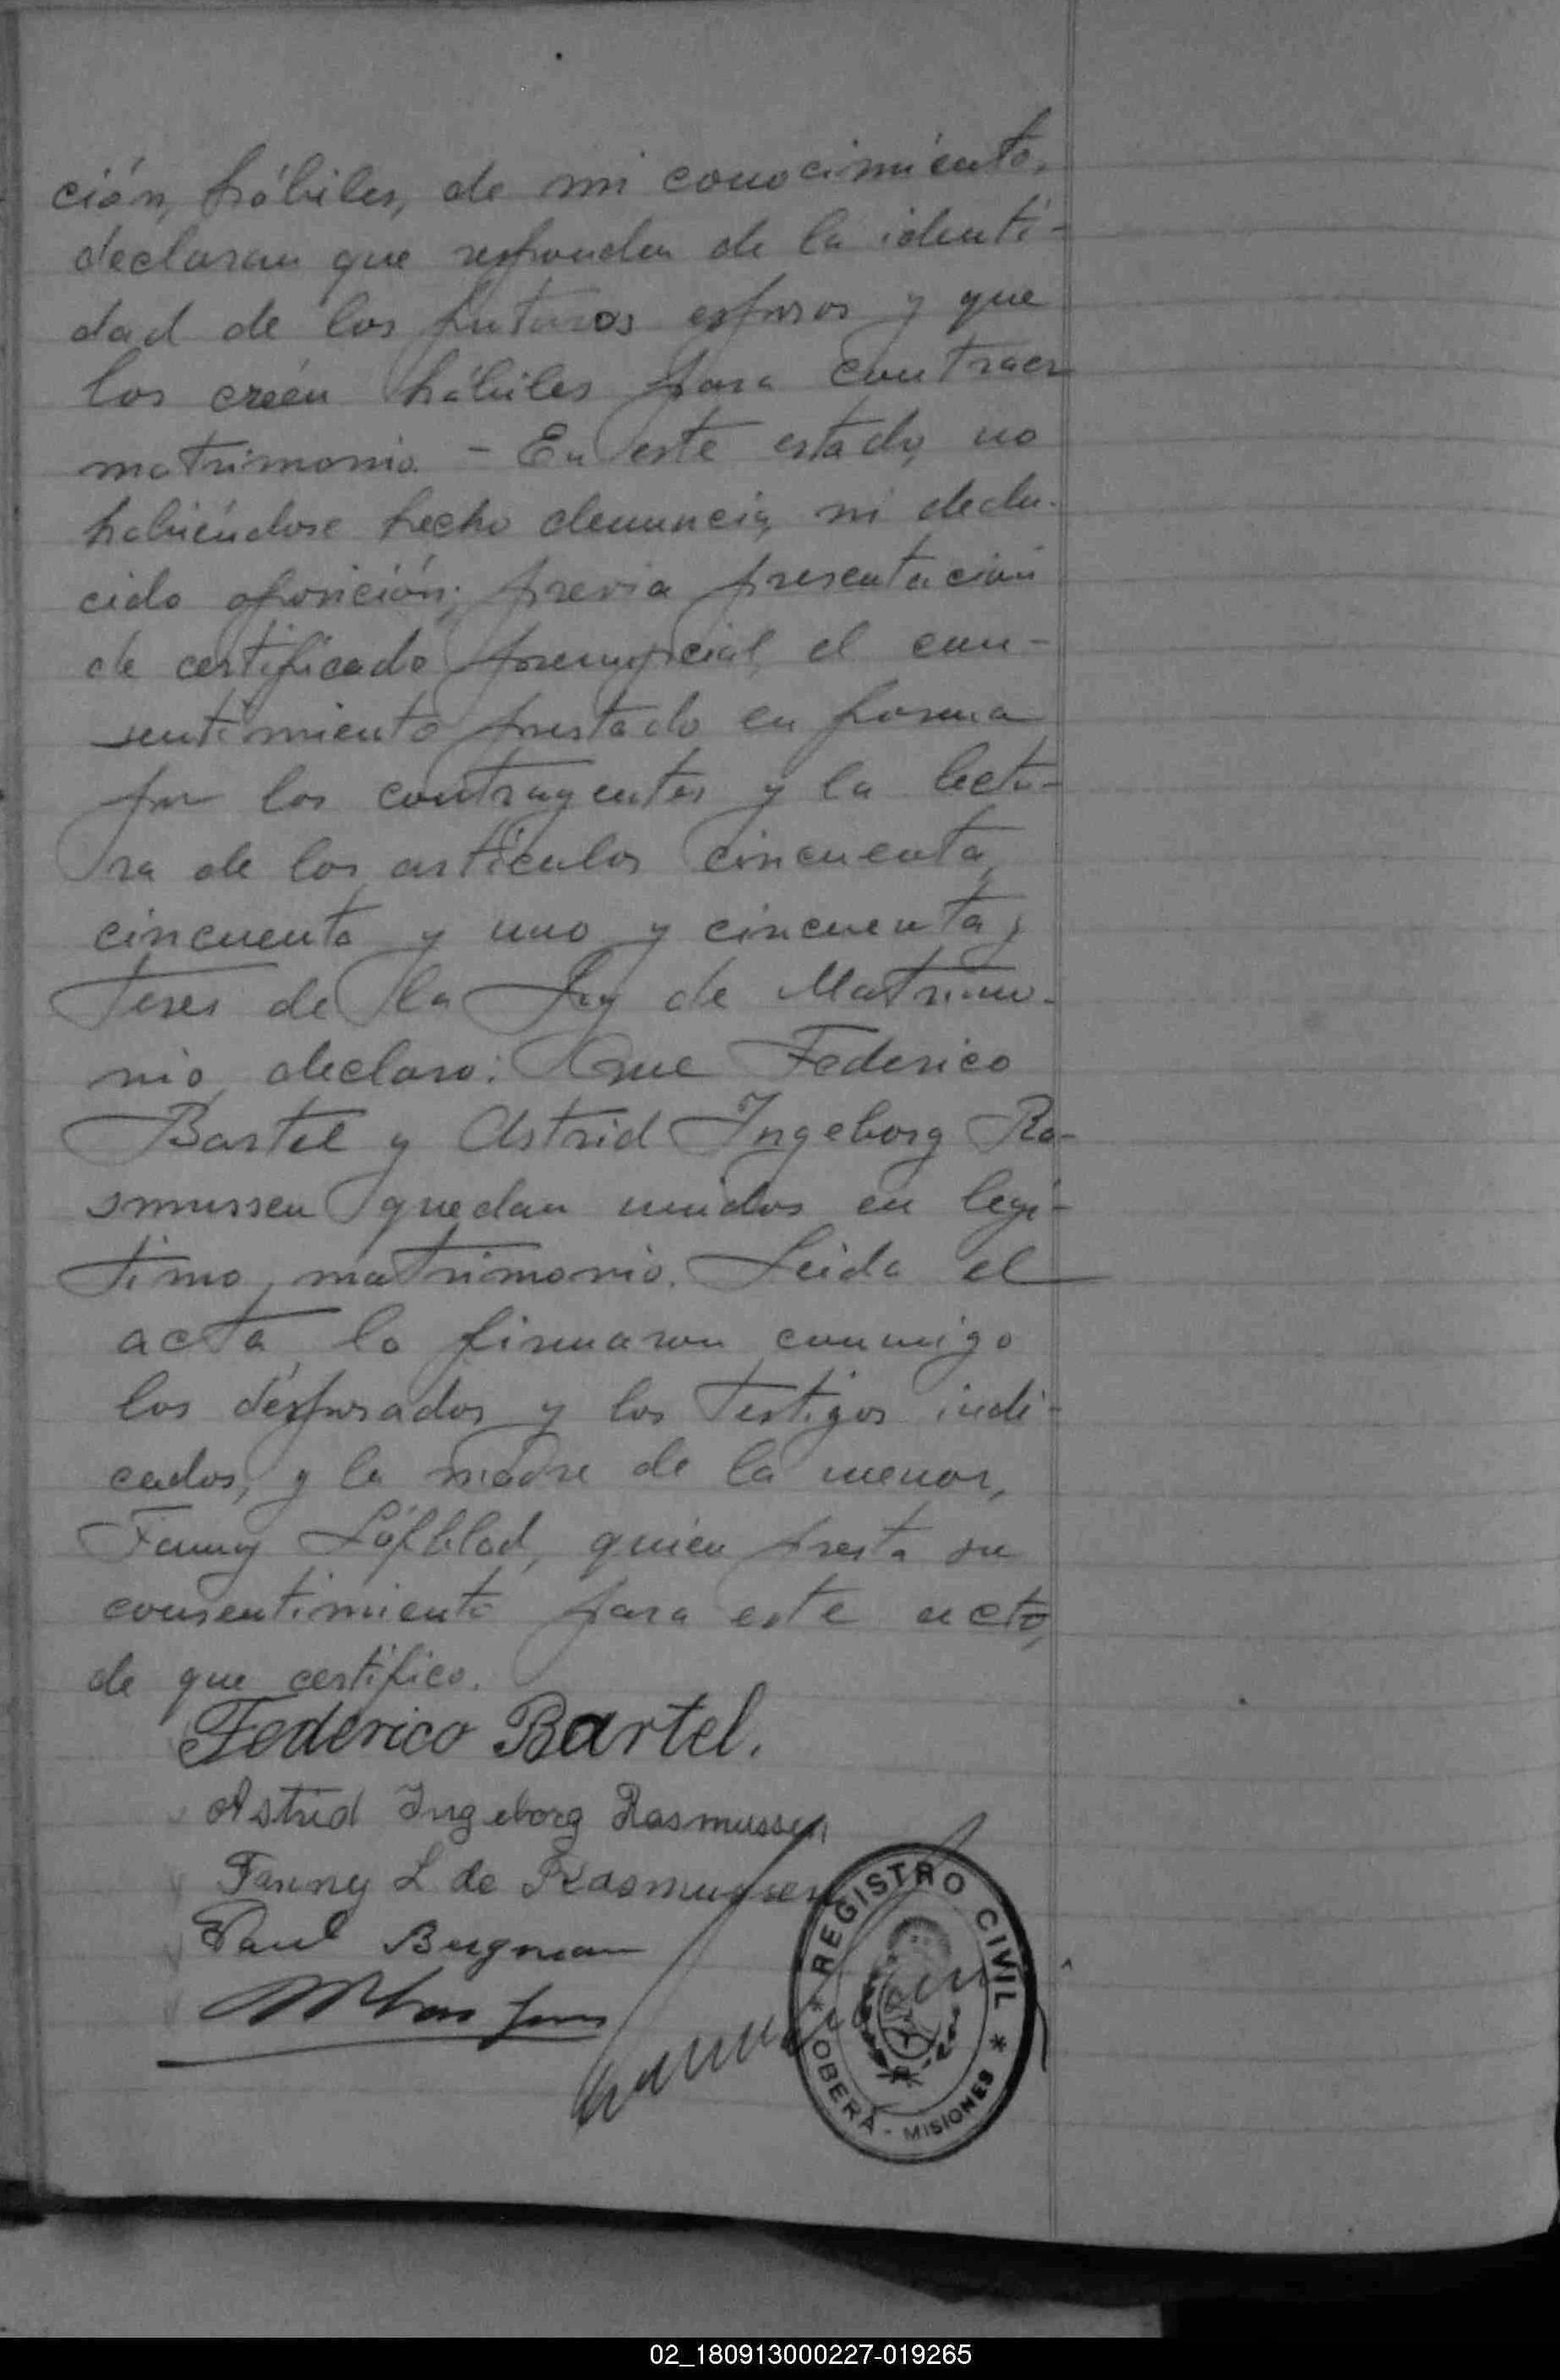 ción, hábiles, de mi conocimiento,
declaran que responden de la identi-
dad de los futuros esposos y que
los creén hábiles para contraer
matrimonio. - En este estado, no
habiéndose hecho denuncia, ni dedu-
cido oposición; previa presentación
de certificado prenupcial, el con-
sentimiento prestado en forma
por los contrayentes y la lectu-
ra de los artículos cincuenta,
cincuenta y uno y cincuenta y
tres de la Ley de Matrimo-
nio, declaro: Que Federico
Bartel y Astrid Ingeborg Ra-
smussen quedan unidos en legí-
timo matrimonio. Leida el
acta, la firmaron conmigo
los desposados y los testigos indi-
cados, y la madre de la menor,
Fanny Löfblad, quien presta su
consentimiento para este acto,
de que certifico.
Federico Bartel.
Astrid Ingeborg Rasmussen
Fanny L de Rasmussen
Paul Bergman
REGISTRO CIVIL
OBERÁ - MISIONES
02_180913000227-019265